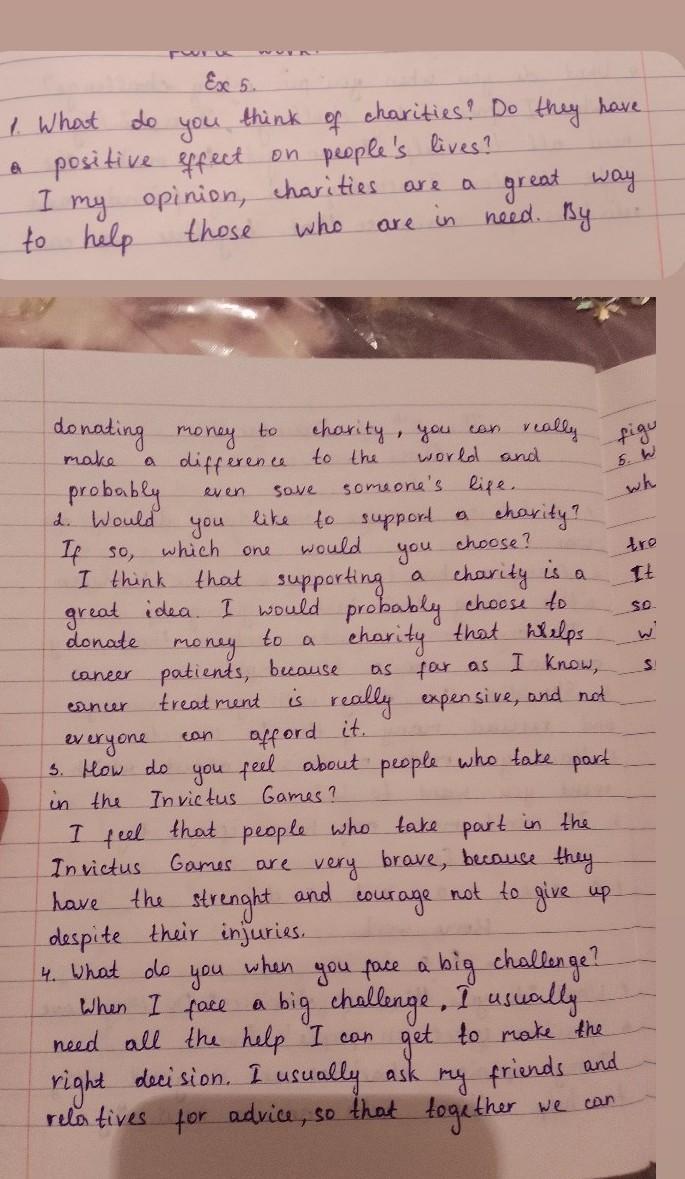 Ex 5.
1. What do you think of charities? Do they have
a positive effect on people's lives?
I my opinion, charities are a great way
to help those who are in need. By
donating money to charity, you can really
make a difference to the world and
probably even save someone's life.
2. Would you like to support a charity?
If so, which one would you choose?
I think that supporting a charity is a
great idea. I would probably choose to
donate money to a charity that helps
cancer patients, because as far as I know,
cancer treatment is really expensive, and not
everyone can afford it.
3. How do you feel about people who take part
in the Invictus Games?
I feel that people who take part in the
Invictus Games are very brave, because they
have the strenght and courage not to give up
despite their injuries.
4. What do you when you face a big challenge?
When I face a big challenge, I usually
need all the help I can get to make the
right decision. I usually ask my friends and
relatives for advice, so that together we can
figu
5. W
wh
tro
It
so
w
s